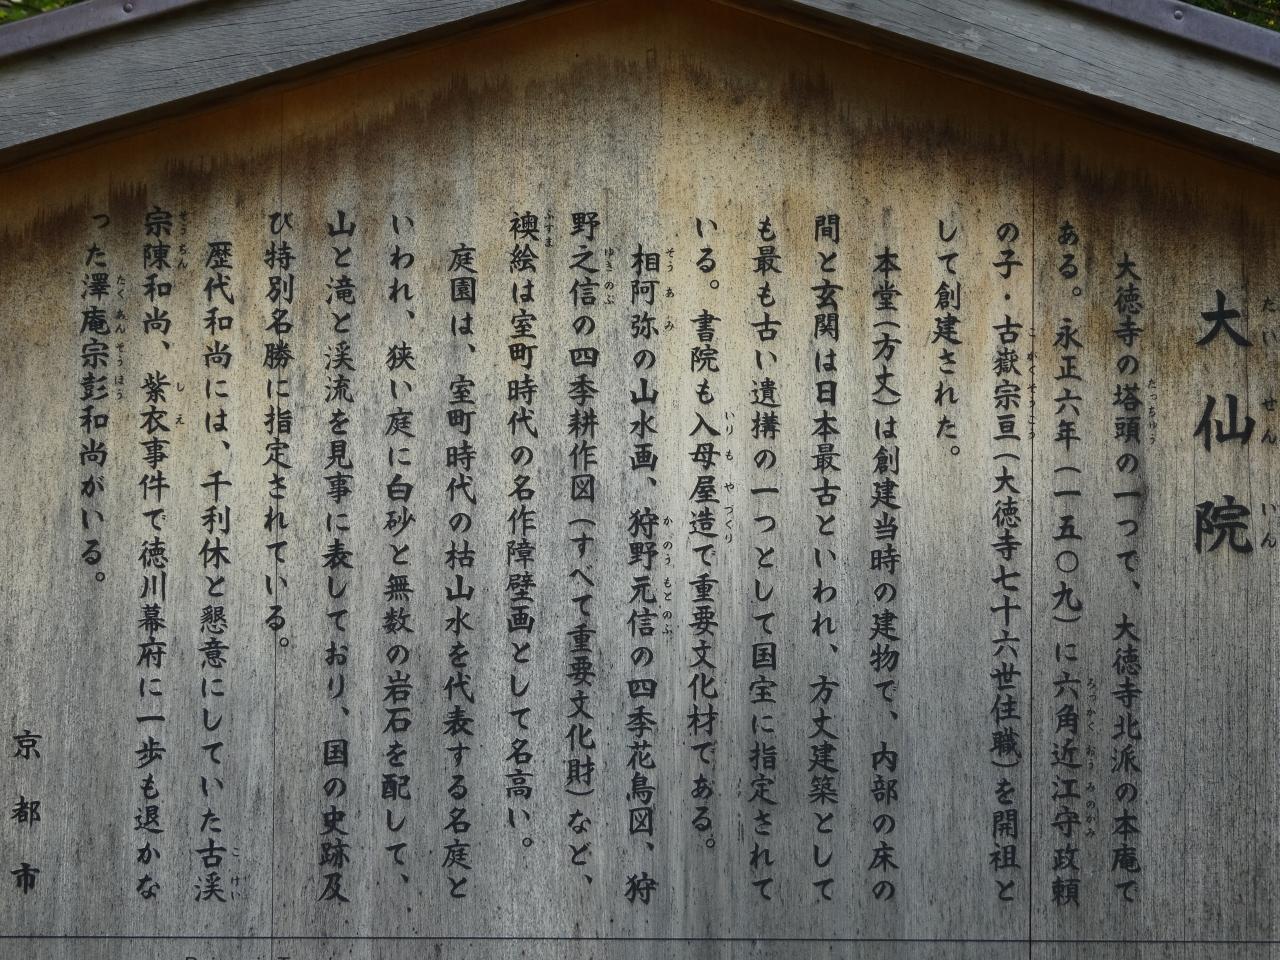 大仙院
大徳寺の塔頭の一つで、大徳寺北派の本庵で
ある。永正六年(一五〇九)に六角近江守政頼
の子・古嶽宗亘(大徳寺七十六世住職)を開祖と
して創建された。
本堂(方丈)は創建当時の建物で、内部の床の
間と玄関は日本最古といわれ、方丈建築として
も最も古い遺構の一つとして国宝に指定されて
いる。書院も入母屋造で重要文化材である。
相阿弥の山水画、狩野元信の四季花鳥図、狩
野之信の四季耕作図(すべて重要文化財)など、
襖絵は室町時代の名作障壁画として名高い。
庭園は、室町時代の枯山水を代表する名庭と
いわれ、狭い庭に白砂と無数の岩石を配して、
山と滝と渓流を見事に表しており、国の史跡及
び特別名勝に指定されている。
歴代和尚には、千利休と懇意にしていた古渓
宗陳和尚、紫衣事件で徳川幕府に一歩も退かな
った澤庵宗彭和尚がいる。
京都市